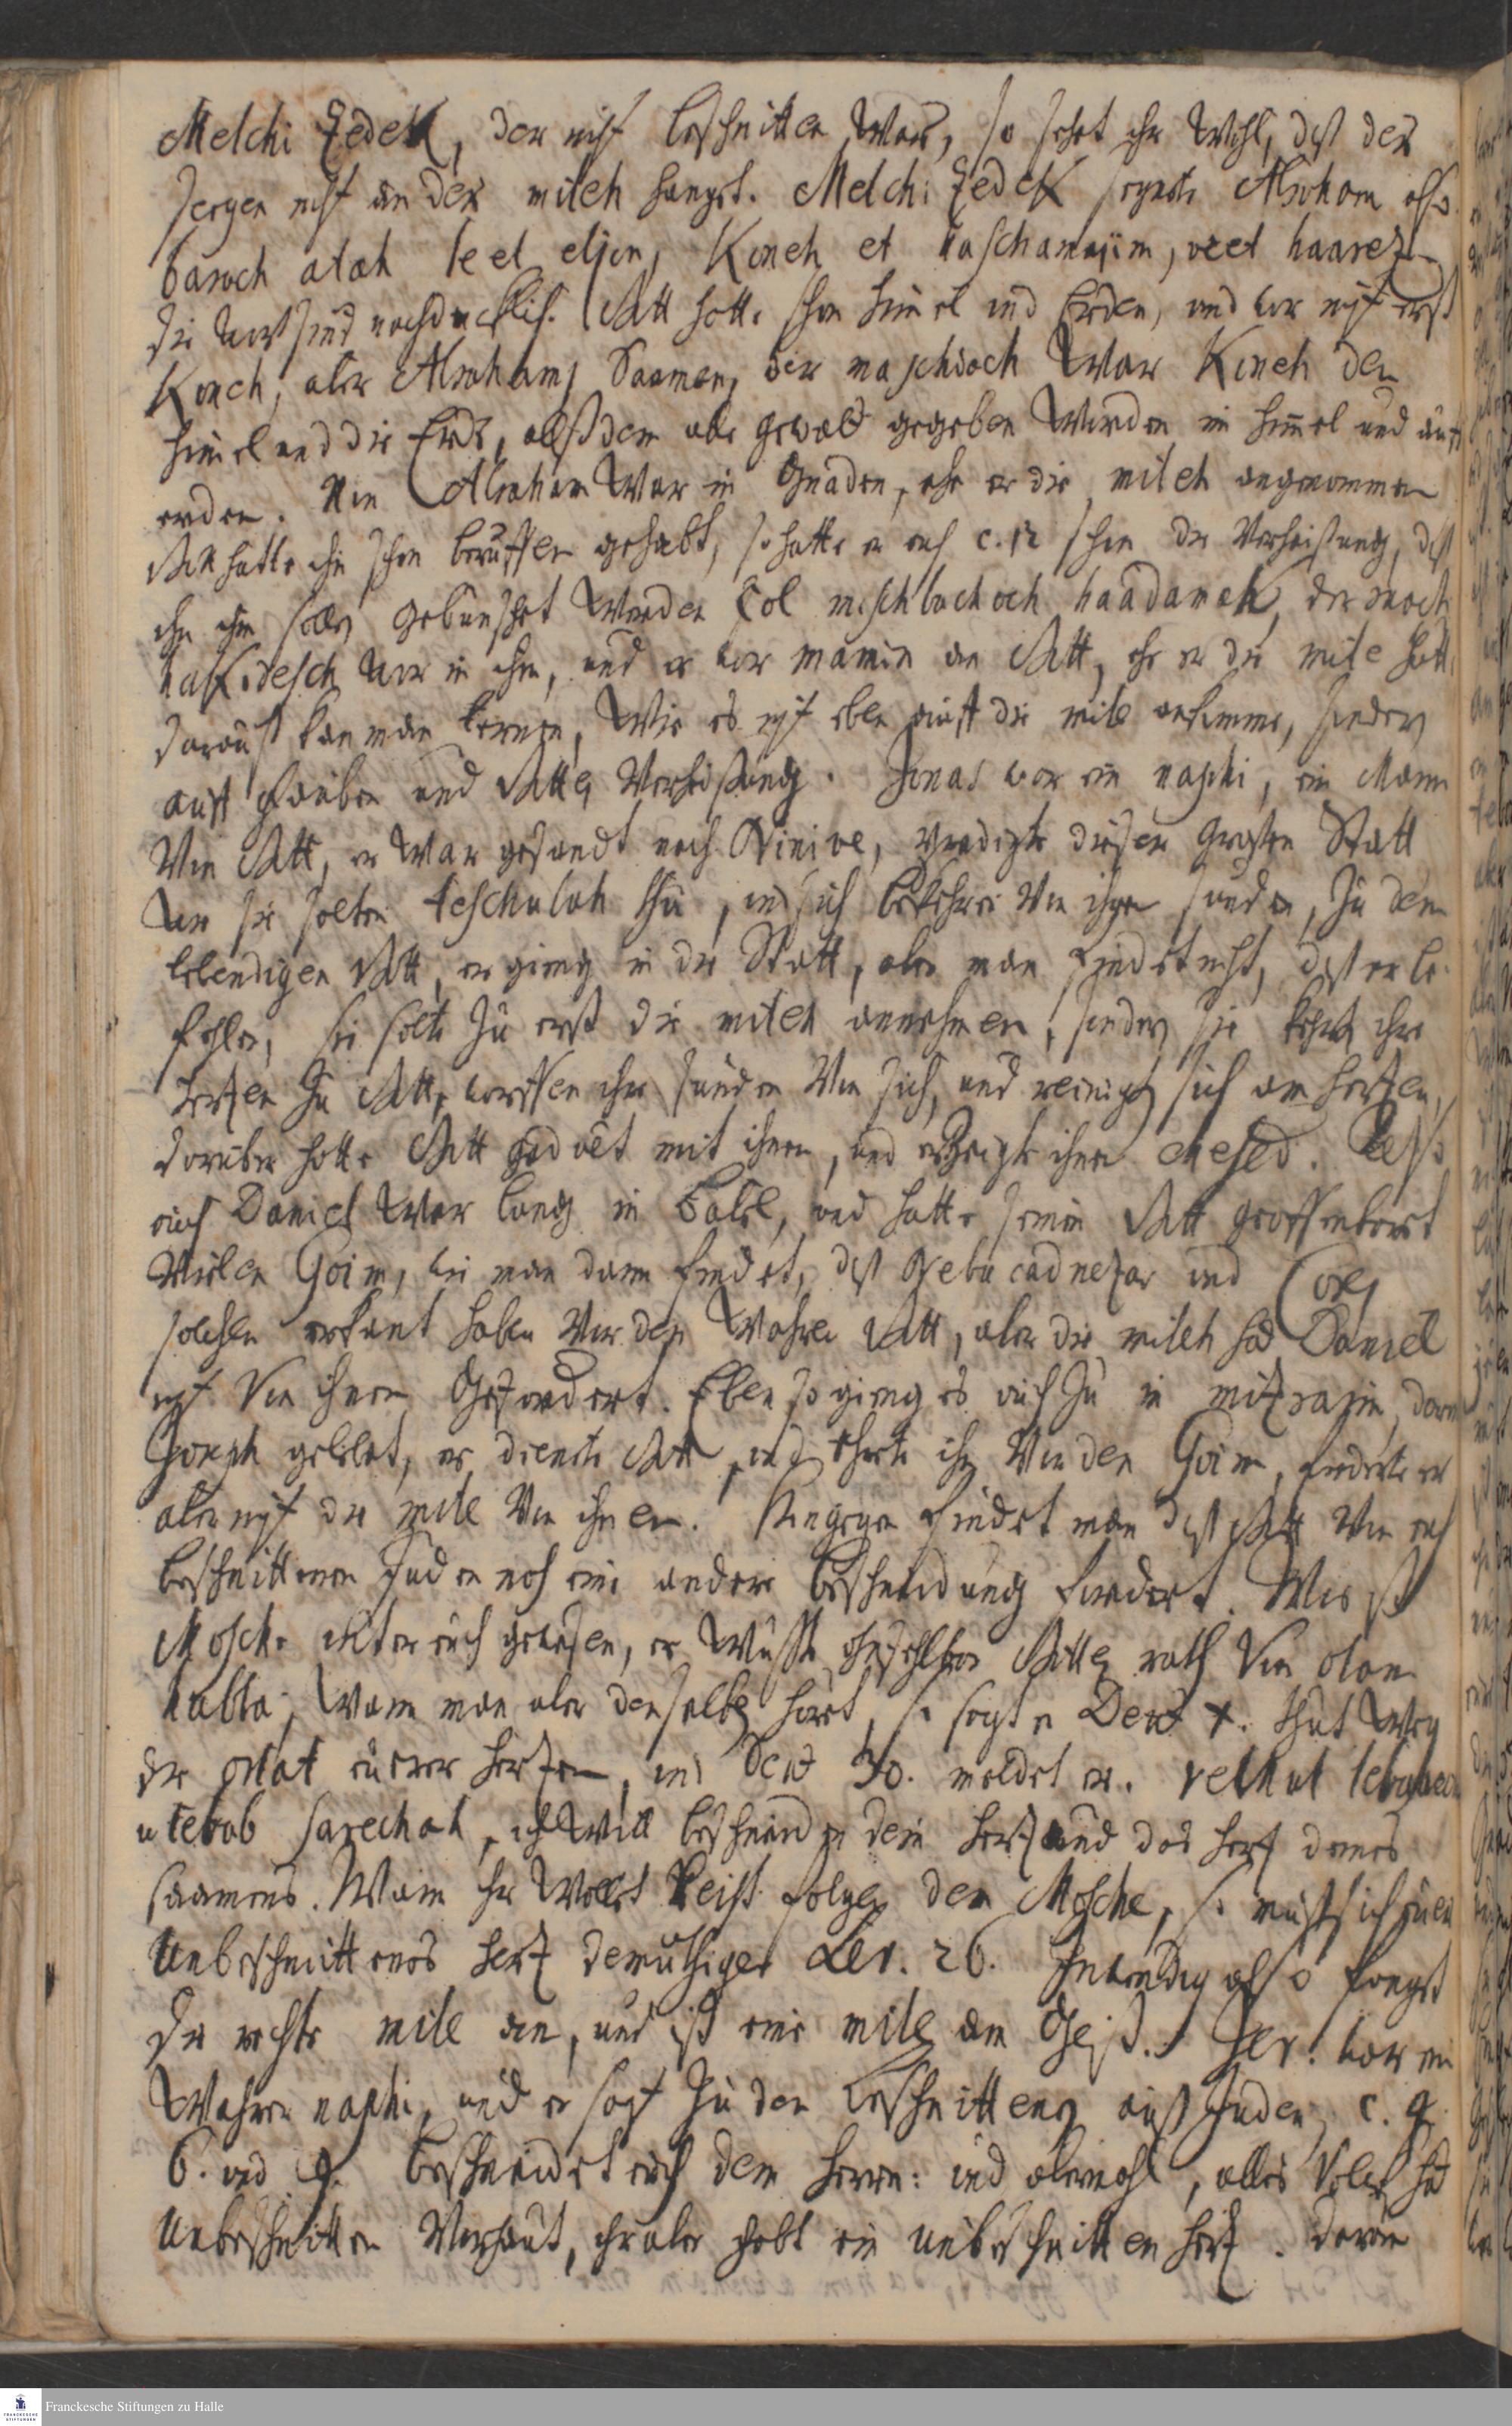 Melchi Zedek, der nicht beschnitten war, so sehet ihr wohl, dß der
Seegen nicht an der mileh hanget. Melchi Zedek segnete Abraham also
baruch atah leel eljon, Koneh et haschamajim, veet haarez
die wort sind nachdencklich. Gott hatte schon himel und Erden, und war nicht erst
Koneh, aber Abrahams Saamen, der maschioch war Koneh den
himel und die Erde, alß dem alle gewalt gegeben worden im himel und auf
erden. Nun Abraham war in Gnaden, ehe er die mileh angenommen
Gott hatte ihn schon beruffen gehabt, so hatte er auch c. 12 schon die Verheissung, dß
in ihm solten gebenschet werden Col mischbachoch haadamah, der ruach
hakodesch war in ihm, und er war mamin an Gott, ehe er die mile hatte
darauß kan man lernen, wie es nicht eben auff die mile ankomme, sondern
auff glauben und Gottes Verheissung. Jonas war ein naphi, ein Mann
von Gott, er war gesandt nach Ninive, predigte dieser grossen Statt
sie solten teschubah thun, und sich bekehren von ihren sünden, zu dem
lebendigen Gott, er gieng in die Statt, aber man findet nicht, dß er be-
fohlen, sie solten zu erst die mileh annehmen, sondern sie kehrten ihre
hertzen zu Gott, worffen ihre sünden von sich, und reinigten sich am hertzen,
darüber hatte Gott gedult mit ihnen, und erzeigte ihnen chesed.
auch Daniel war lang in Babel, und hatte seinen Gott geoffenbart
vielen Goim, wie man dann findet, dß Nebucadnezar und Cores
solchen erkant haben vor den wahren Gott, aber die mileh hat Daniel
nicht von ihnen gefordert. Eben so gieng es auch zu in mitzrajim, darin
Joseph gelebet, er diente Gott, und ehrete ihn von den Goim, forderte er
aber nicht die mile von ihnen. Hingegen findet man dß Gott von euch
beschnittenen Juden noch eine andere beschneidung fordert. Wer ist
Mosche unter euch gewesen, er wuste Gottes rath von olam
habba; wann man aber denselben höret, so sagt er Deut X. thut weg
die orlat eurer hertzen, und Deut 30. meldet er. vethut lebabecha
u lebab sarechah, ich will beschneiden dein hertz und das hertz deines
saamens. Wann ihr wollet folgen dem Mosche, so muß sich euer
Unbeschnittenes hertz demüthigen Lev. 26. Inwendig also fangt
die rechte mile an, und ist eine mile am Geist. Jer. war ein
Wahrer naphi, und er sagt zu den beschnittenen auß Juden, c. 4.
6. und 9. beschneidet euch dem herren: und abermahl, alles Volck hat
Unbeschnitten Vorhaut, ihr aber habt ein unbeschnitten hertz. darin
Franckesche Stiftungen zu Halle